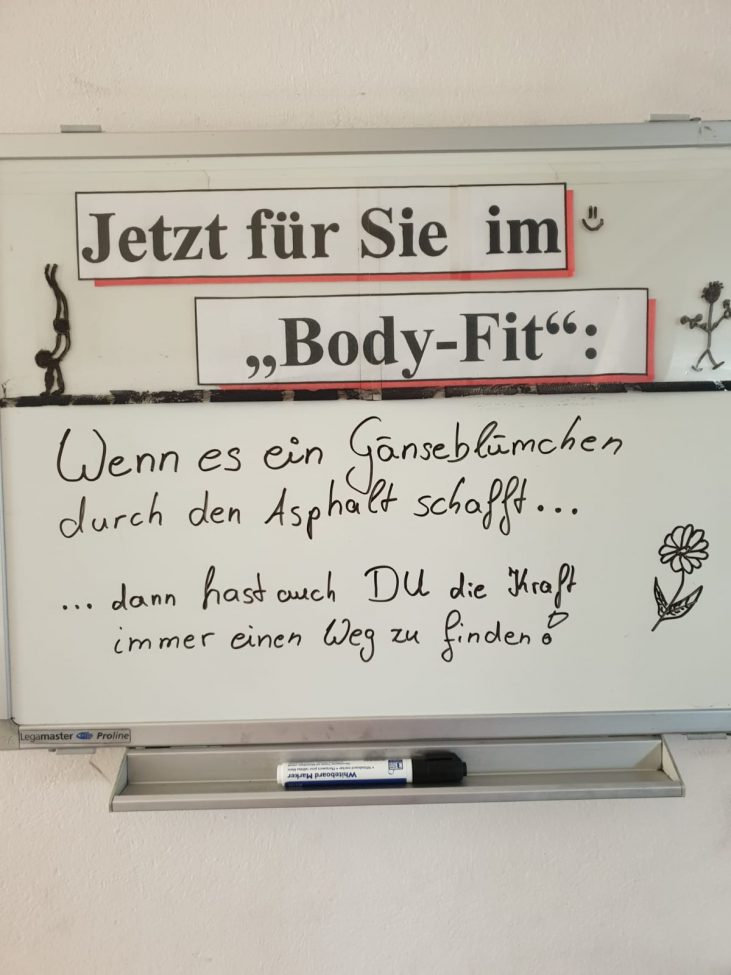 Jetzt für Sie im
„Body-Fit“:
Wenn es ein Gänseblümchen
durch den Asphalt schafft...
... dann hast auch DU die Kraft
immer einen Weg zu finden!
Legamaster Proline
Whiteboard Marker